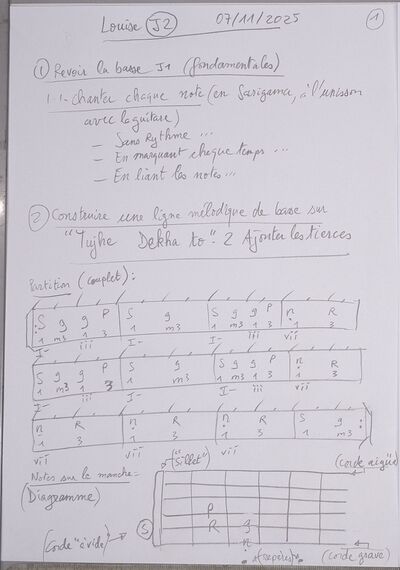 Louise J2 07/11/2025 1
1 Revoir la basse J1 (fondamentales)
1.1- Chanter chaque note (en Sarigama, à l'unisson
avec la guitare)
– Sans Rythme ...
– En marquant chaque temps ...
– En liant les notes ...
2 Construire une ligne mélodique de basse sur
"Tujhe Dekha to": 2 Ajouter les tierces
Partition (couplet) :
S g g P S g S g g P n R
1 m3 1 3 1 m3 1 m3 1 3 1 3
I- iii I- I- iii vii
S g g P S g S g g P n R
1 m3 1 3 1 m3 1 m3 1 3 1 3
I- iii I- I- iii vii
n R n R n R S g
1 3 1 3 1 3 1 m3
vii vii vii I-
Notes sur le manche = ("Sillet") (corde aigüe)
(Diagramme)
P
S R g
(Corde "à vide") n (corde grave)